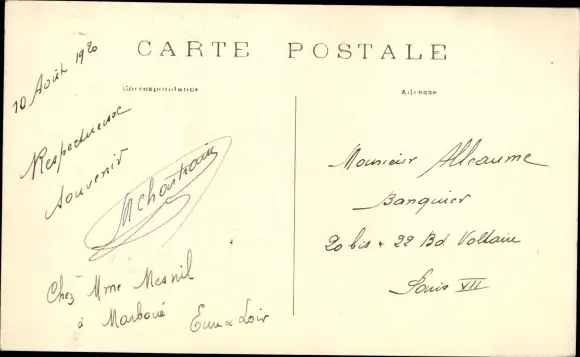 CARTE POSTALE
Correspondance
Adresse
10 Août 1920
Respectueux
Souvenir
MChastrain
Chez Mme Mesnil
à Marboué
Eure & Loir
Monsieur Alleaume
Banquier
20 bis & 22 Bd Voltaire
Paris VII